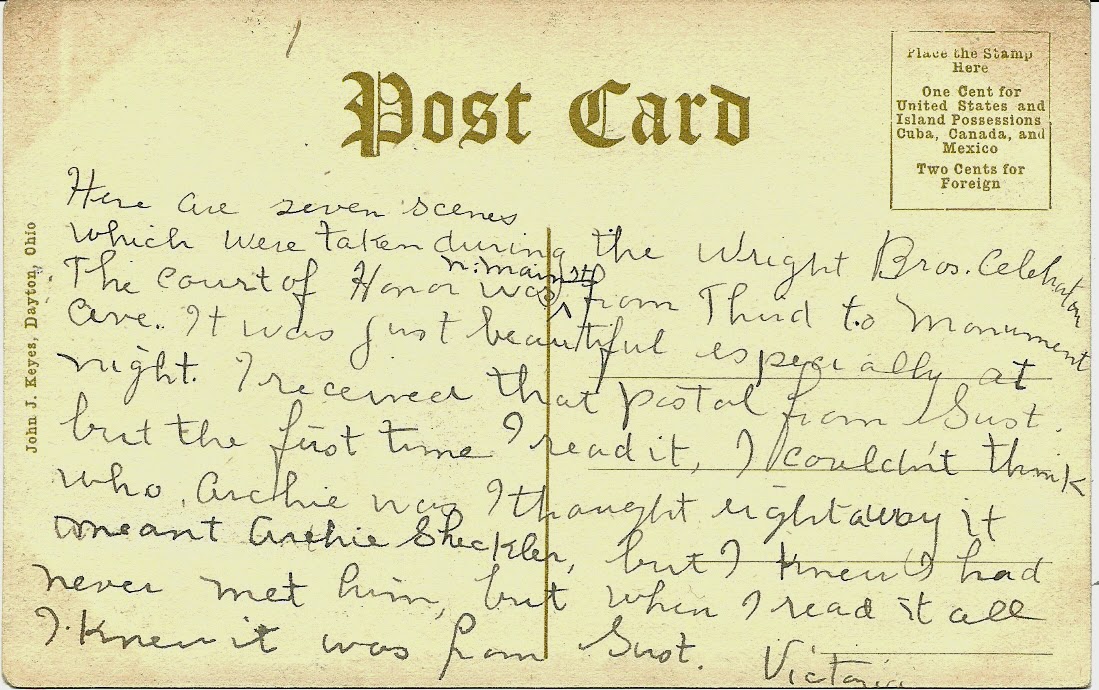 Post Card
Place the Stamp
Here
One Cent for
United States and
Island Possessions
Cuba, Canada, and
Mexico
Two Cents for
Foreign
John J. Keyes, Dayton, Ohio
Here are seven scenes
which were taken during the Wright Bros. Celebration
n. main st
The Court of Honor was from Third to Monument
Ave. It was just beautiful especially at
night. I received that postal from Gust.
but the first time I read it, I couldn't think
who Archie was I thought right away it
meant Archie Sheckler, but I knew I had
never met him, but when I read it all
I knew it was from Gust. Victoria